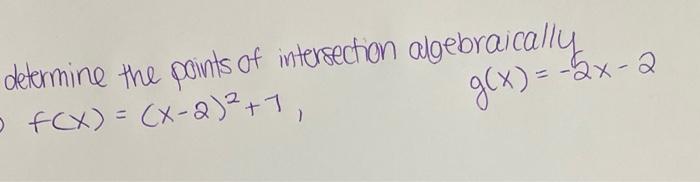 determine the points of intersection algebraically
f(x) = (x-2)²+7, g(x) = -2x-2